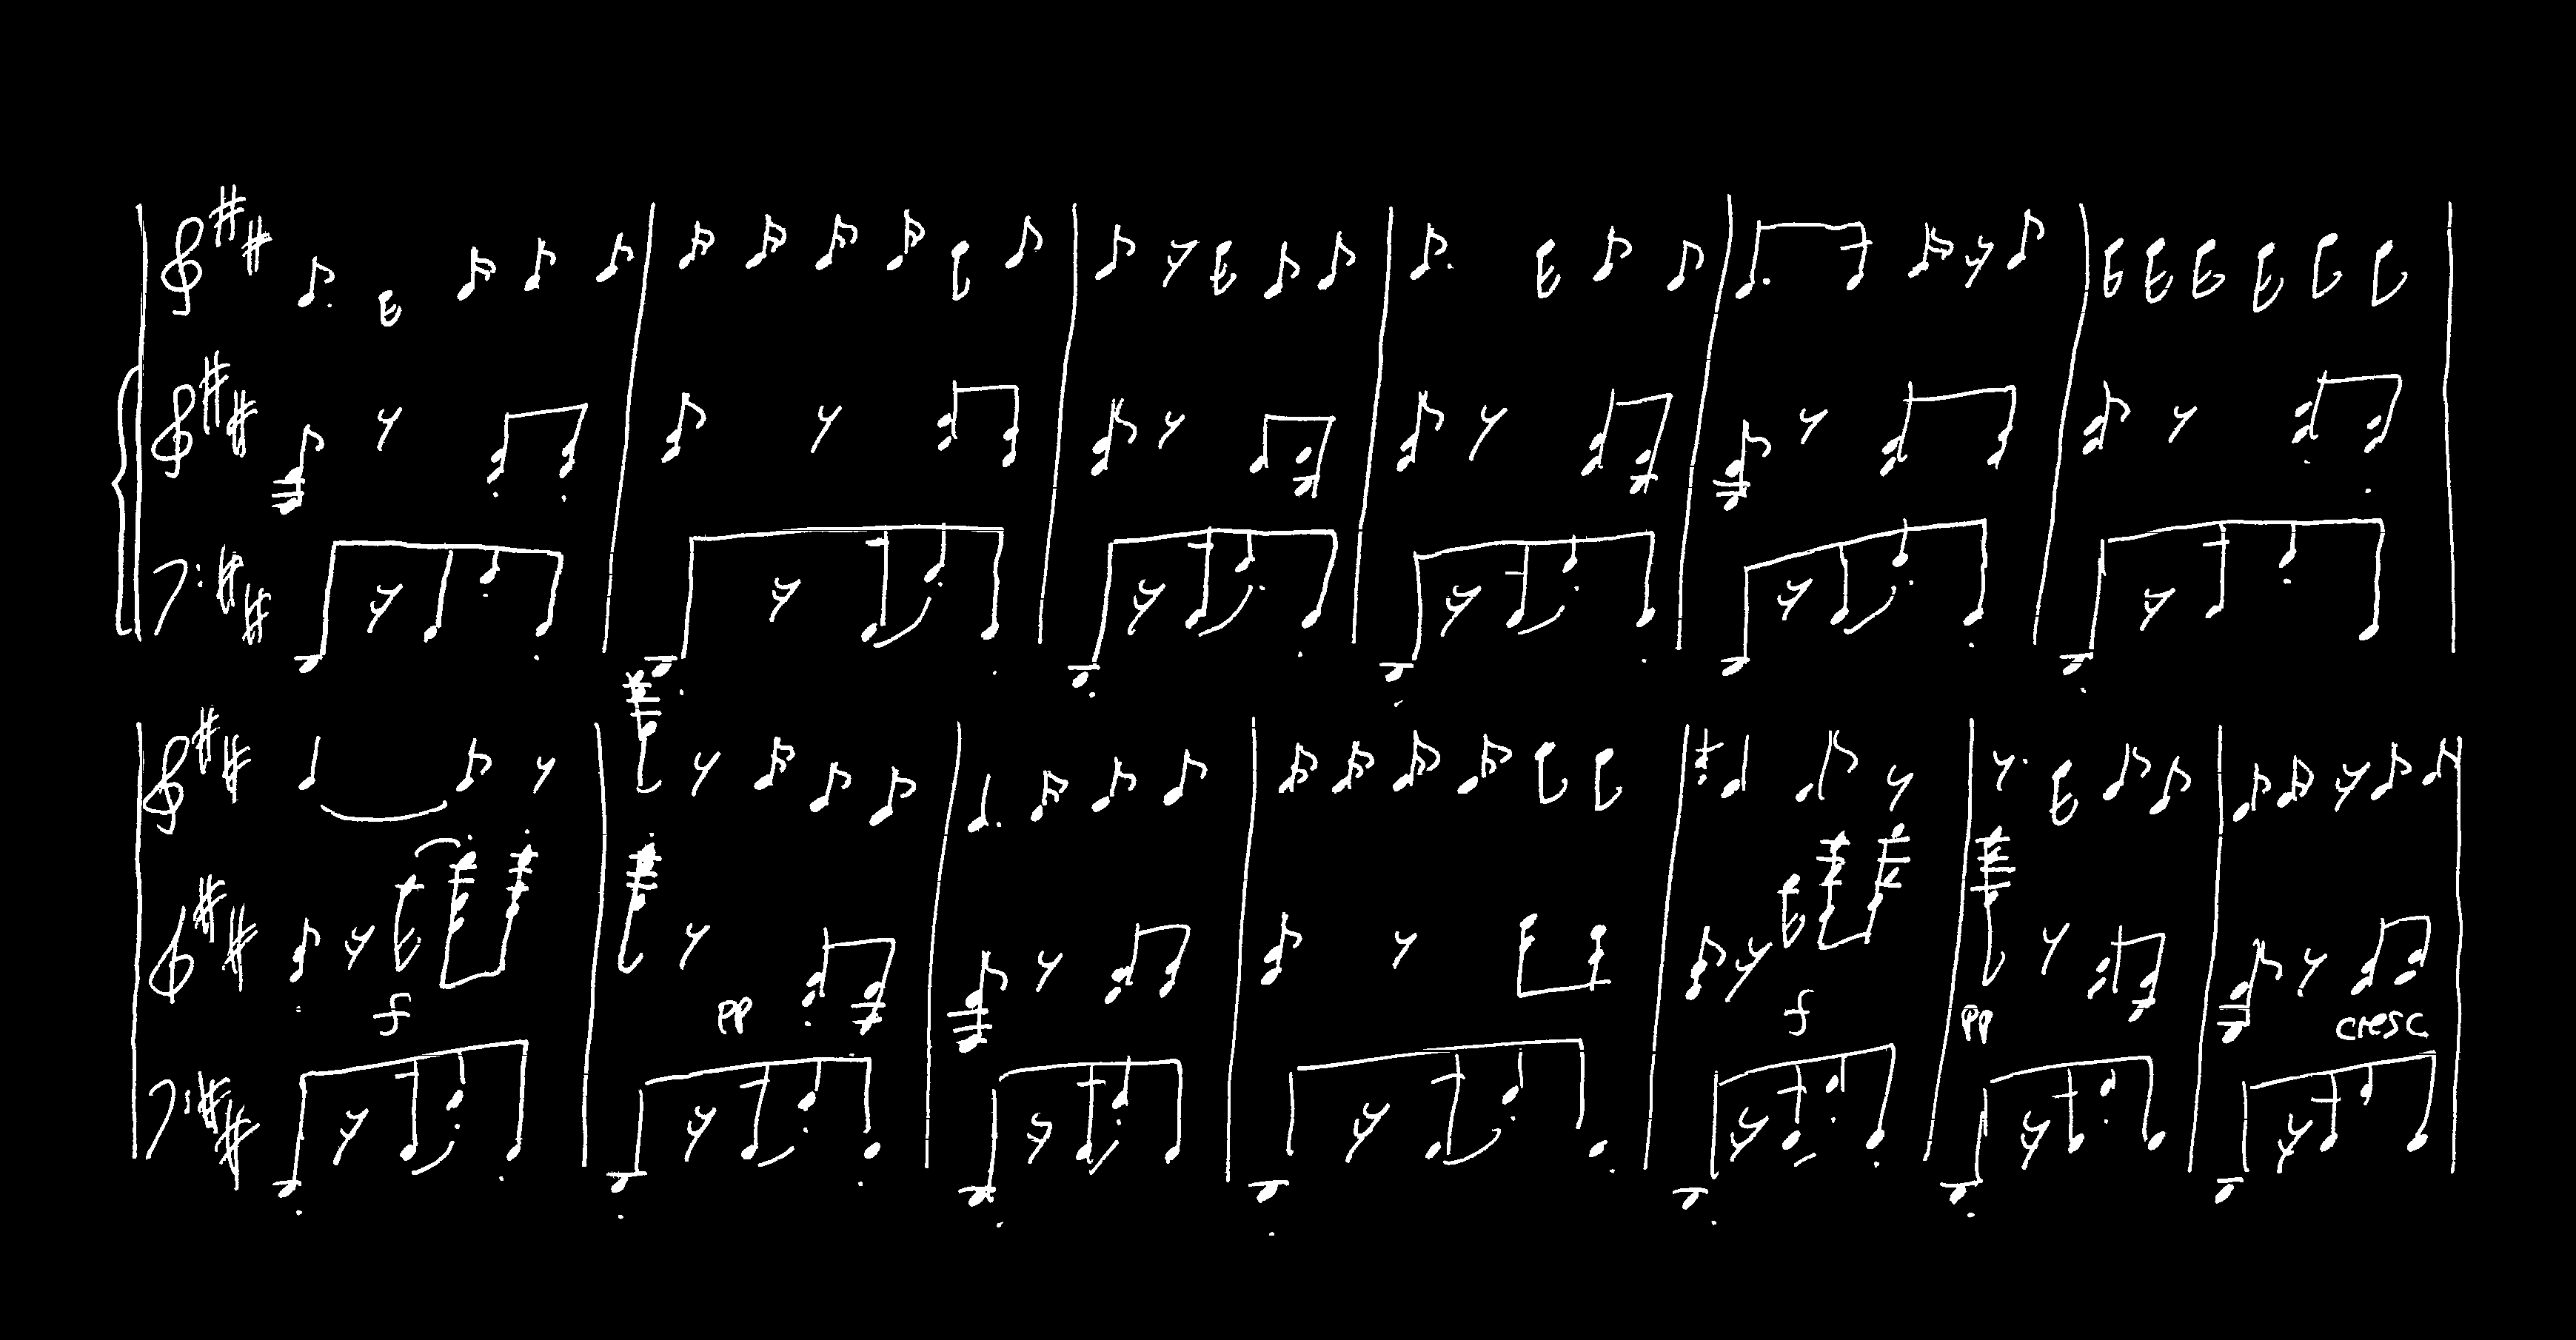 f
pp
f
pp
cresc